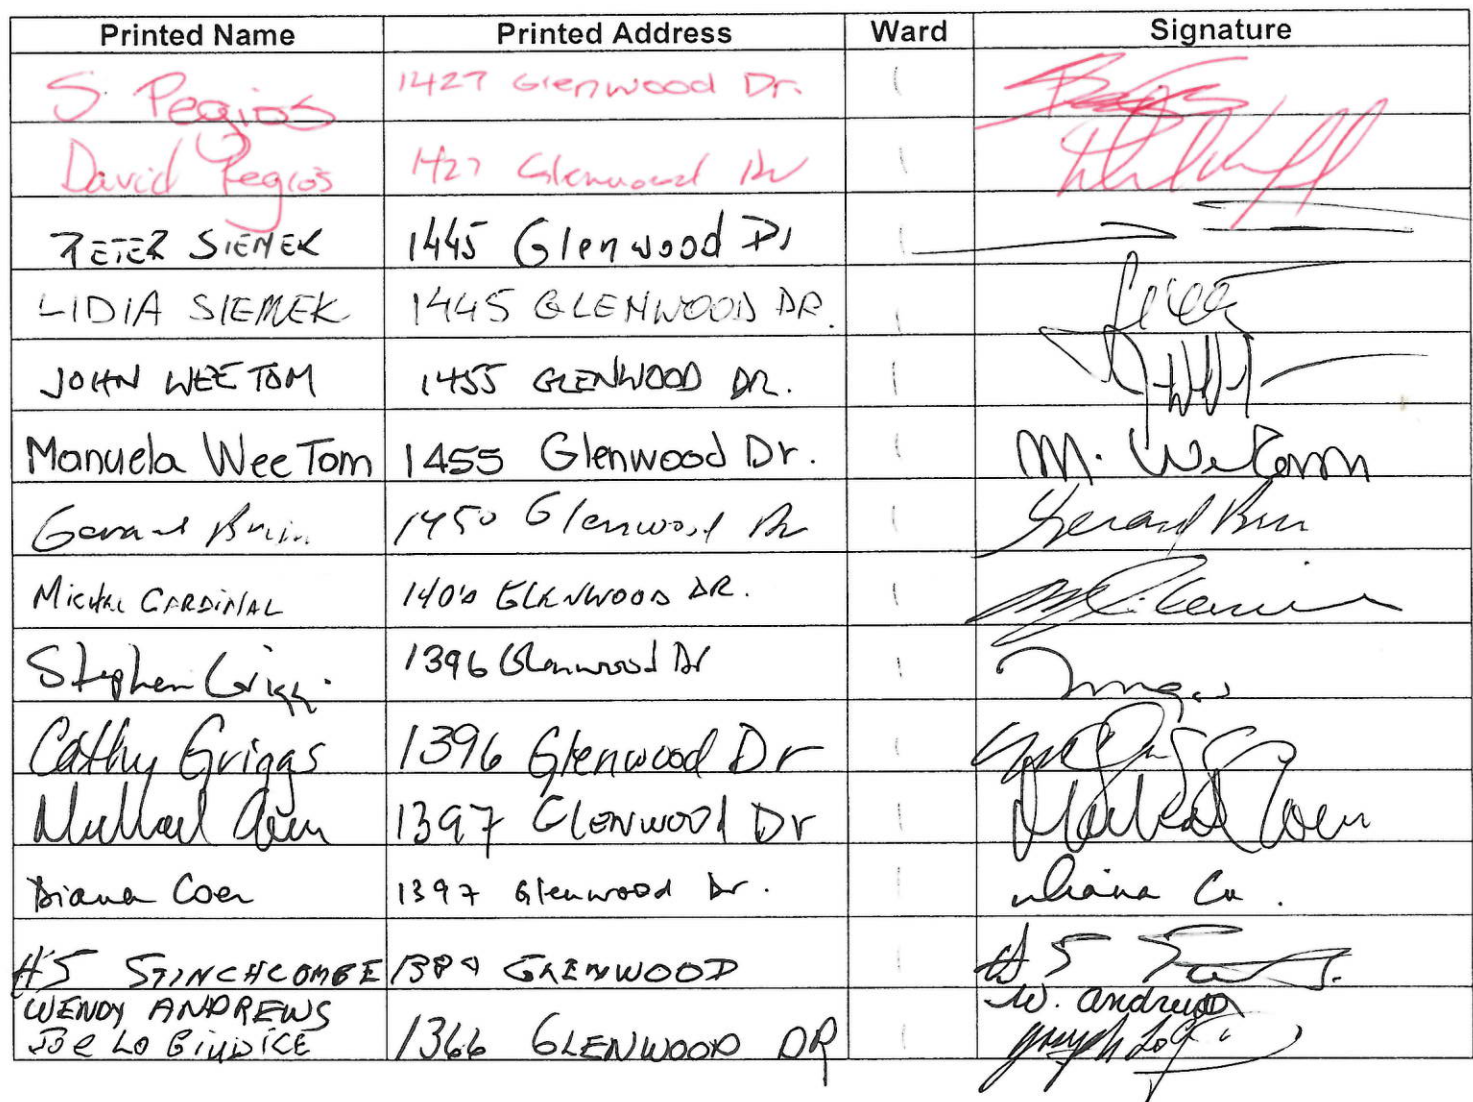 Printed Name Printed Address Ward Signature
S. Pegios 1427 Glenwood Dr. 1
David Pegios 1427 Glenwood Dr 1
PETER SIEMEK 1445 Glenwood Dr 1
LIDIA SIEMEK 1445 GLENWOOD DR. 1
JOHN WEE TOM 1455 GLENWOOD DR. 1
Manuela Wee Tom 1455 Glenwood Dr. 1 M. WeeTom
1450 Glenwood Dr 1 Gerard
CARDINAL GLENWOOD DR. 1
Stephen 1396 Glenwood Dr 1
Cathy Griggs 1396 Glenwood Dr 1
Michael Coen 1397 GLENWOOd Dr 1 Michael Coen
Diana Coen 1397 Glenwood Dr. 1 Diana Co.
STINCHCOMBE 1389 GLENWOOD 1
WENDY ANDREWS W. andrews
JOE LO GIUDICE 1366 GLENWOOD DR 1 Joseph LoG